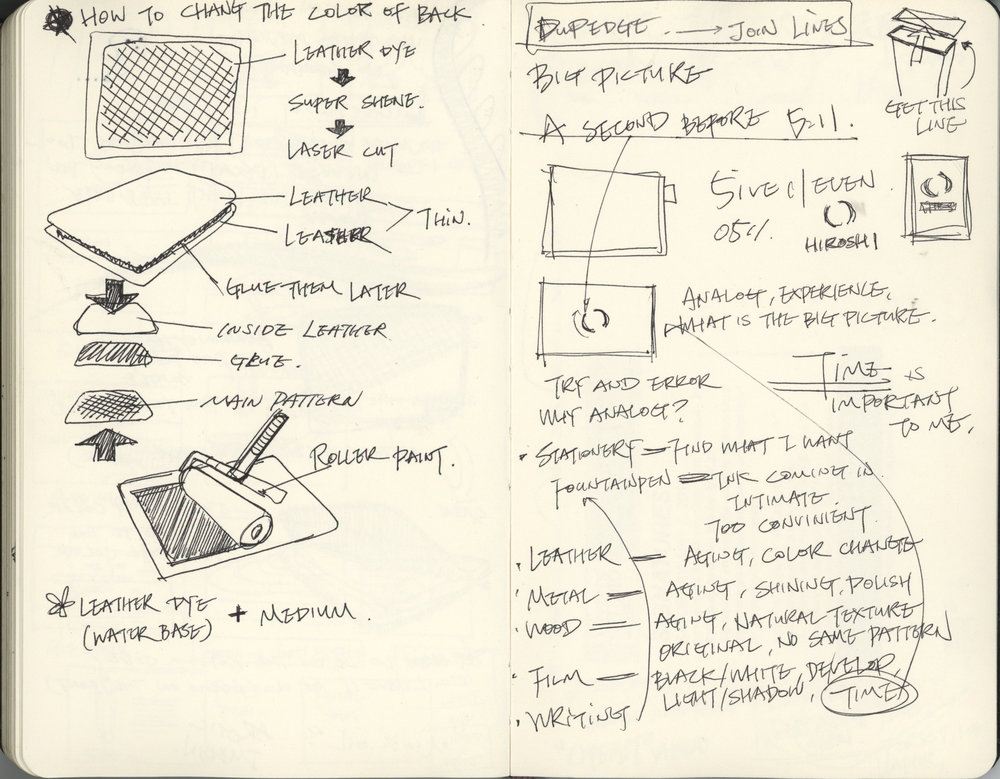 HOW TO CHANG THE COLOR OF BACK
LEATHER DYE
SUPER SHENE.
LASER CUT
LEATHER
LEATHER
THIN.
GLUE THEM LATER
INSIDE LEATHER
GLUE.
MAIN PATTERN
ROLLER PAINT.
LEATHER DYE + MEDIUM.
(WATER BASE)
DUPEDGE. → JOIN LINES
BIG PICTURE
GET THIS
LINE
A SECOND BEFORE 5:11.
EVEN
05%.
HIROSHI
ANALOG, EXPERIENCE,
WHAT IS THE BIG PICTURE.
TIME IS
IMPORTANT
TO ME.
TRY AND ERROR
WHY ANALOG?
• STATIONERY = FIND WHAT I WANT
FOUNTAINPEN = INK COMING IN
INTIMATE.
TOO CONVINIENT.
• LEATHER = AGING, COLOR CHANGE
• METAL = AGING, SHINING, POLISH
• WOOD = AGING, NATURAL TEXTURE
ORIGINAL, NO SAME PATTERN
• FILM = BLACK/WHITE, DEVELOP,
LIGHT/SHADOW, TIME
• WRITING